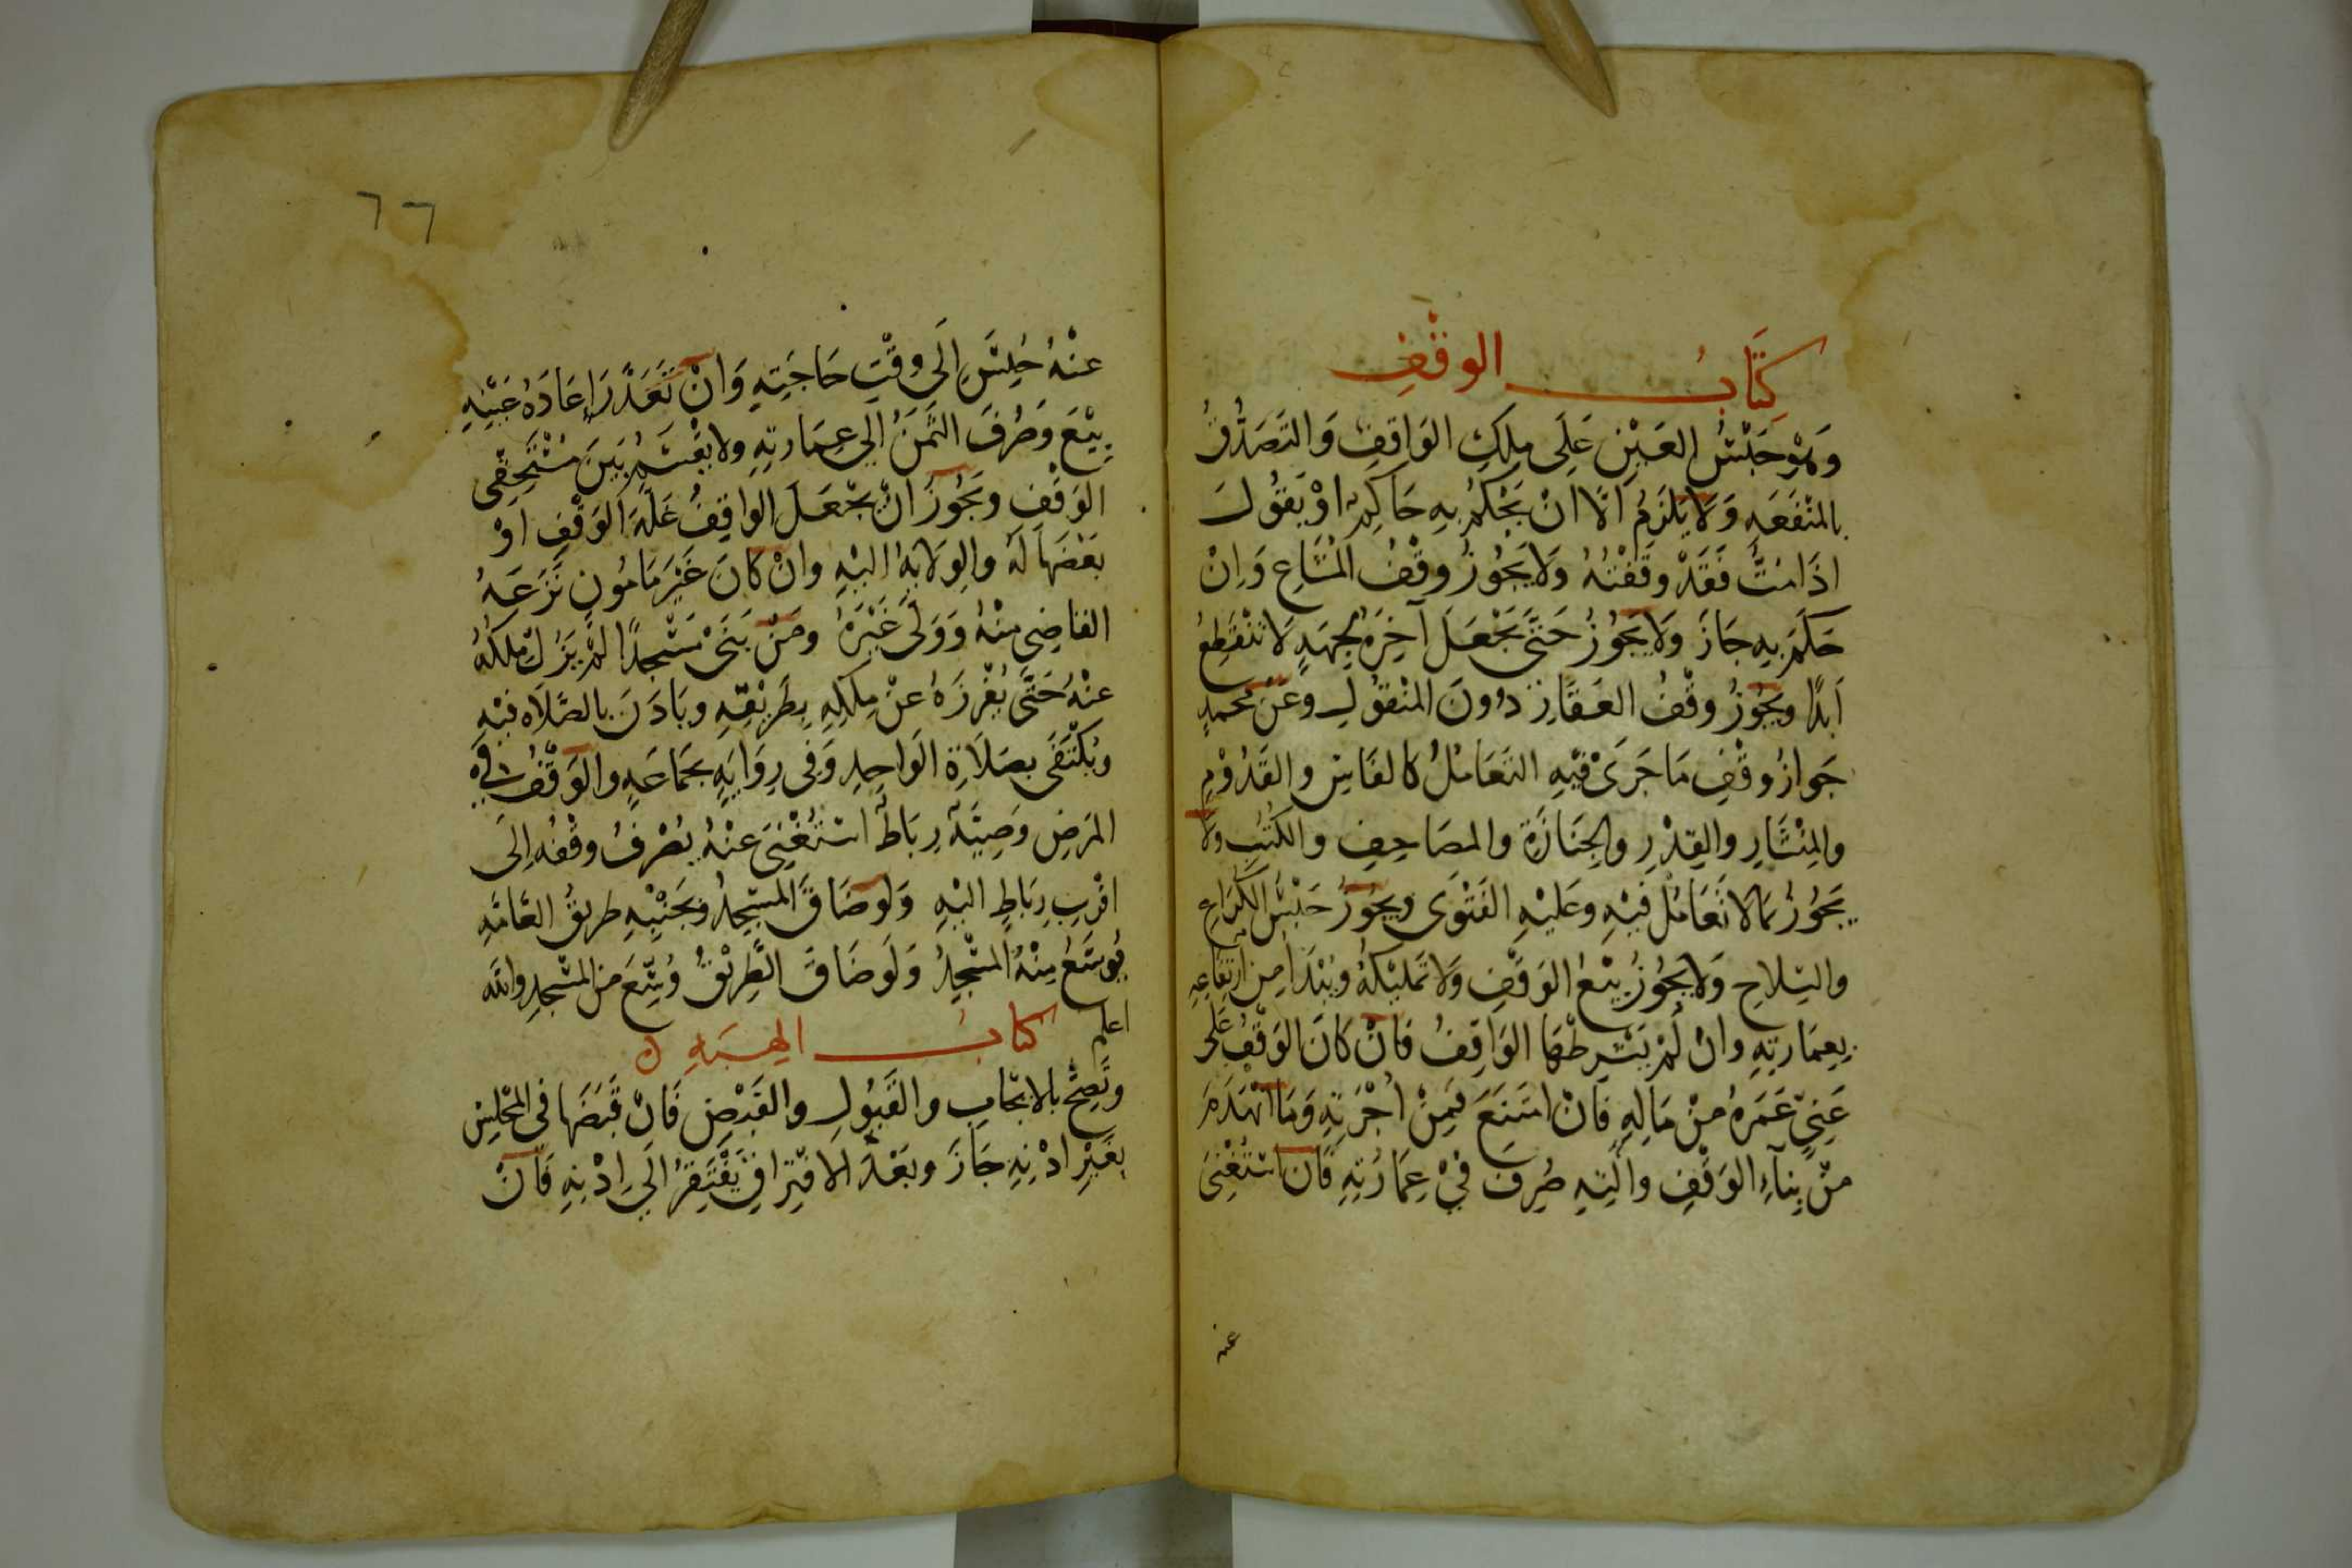 كِتَابُ الوقْفِ
وَهُوَ حَبْسُ العَيْنِ عَلَى مِلكِ الوَاقِفِ وَالتَصَدُّقُ
بالمنْفَعَهِ وَلَا يَلزَمُ الَّا انْ يَحْكُمُ بِهِ حَاكِمٌ اوْ يَقُولَ
اذَا مُتُّ فَقَدْ وقَفْتُهُ وَلَا يَجُوزُ وقْفُ المُشَاعِ وَاِنْ
حَكَمَ بِهِ جَازَ وَلَا يَجُوزُ حَتَّى يَجْعَلَ آخِرَهُ لجِهَهٍ لَا تَنْقَطِعُ
اَبَدًا ويَجُوزُ وقْفُ العَقَارِ دُونَ المنْقُولِ وعَنْ مُحمدٍ
جَوازُ وقْفِ مَا جَرَى فيْهِ التَعَامُلُ كالفَاسِ والقَدُوْمِ
والمِنْشَارِ والقِدْرِ والجِنَازَةِ والمصَاحِفِ والكُتُبِ ولَا
يَجُوزُ مَا لَا تَعَامُلَ فيْهِ وعَليْهِ الفَتْوَى ويجُوزُ حَبْسُ الكُرَاعِ
والسِّلَاحِ وَلَا يجُوزُ بيْعُ الوَقْفِ وَلَا تَمليْكهُ ويُبْدَا مِن ارتفَاعِهِ
بِعِمَارتِهِ وانْ لَمْ يَشْرِطْهَا الوَاقِفُ فَانْ كَانَ الوَقْفُ عَلَى
غَنِيٍّ عَمَرهُ مِنْ مَالِهِ فَانْ امتَنَعَ فَمِنْ اُجْرَتِهِ وَمَا انْهَدَمَ
مِنْ بِنآءِ الوَقْفِ وآلَتِهِ صُرِفَ فيْ عِمَارتِهِ فَان اسْتُغْنِىَ
عنه
٦٦
عنْهُ حُبِسَ اِلَى وقْتِ حَاجَتِهِ وَانْ تَعَذَّرَ اِعَادَةُ عَيْنِهِ
بِيْعَ وَصُرِفَ الثَّمَنُ الي عِمَارتِهِ ولا يُقْسَمُ بَيْنَ مُسْتَحِقّى
الوَقْفِ ويَجُوزُ انْ يجْعَلَ الوَاقِفُ غَلَّهَ الوَقْفِ اَوْ
بَعْضَهَا لَهُ والوِلَايَهُ اليْهِ وانْ كَانَ غَيْرَ مَامُونٍ نَزَعَهُ
القَاضِي مِنْهُ وَوَلَّى غَيْرَهُ ومَنْ بَنَى مَسْجِدًا لمْ يَزُلْ مِلكُهُ
عنْهُ حَتَّى يُفْرِزَهُ عنْ مِلكِهِ بِطَريْقِهِ ويَاذَنَ بالصَّلَاه فيْهِ
ويُكْتَفَى بِصَلَاةِ الوَاحِدِ وَفى رِوَايَهٍ بجَمَاعَهٍ والوَقْفُ فى
المَرَضِ وَصِيَّهٌ رِبَاطٌ اسْتُغْنِىَ عنْهُ يُصْرَفُ وقْفُهُ اِلَى
اقْرَبِ رِبَاطٍ اليْهِ وَلَو ضَاقَ المسْجِدُ وبجَنْبِهِ طَريقُ العَّامَّهِ
يُوسَّعُ مِنْهُ المسْجِدُ وَلَو ضَاقَ الطَّرِيْقُ وُسِّعَ مِنَ المسْجِدِ والله
اعلم كتابُ الهِبَهِ
وتَصِحُّ بالايجَابِ والقَبُولِ والقَبْضِ فَانْ قَبَضَهَا فى المجْلِسِ
بِغَيْرِ اذْنِهِ جَازَ وبَعْدَ الافْتِراقِ يَفْتَقِرُ الَى اِذْنِهِ فَانْ